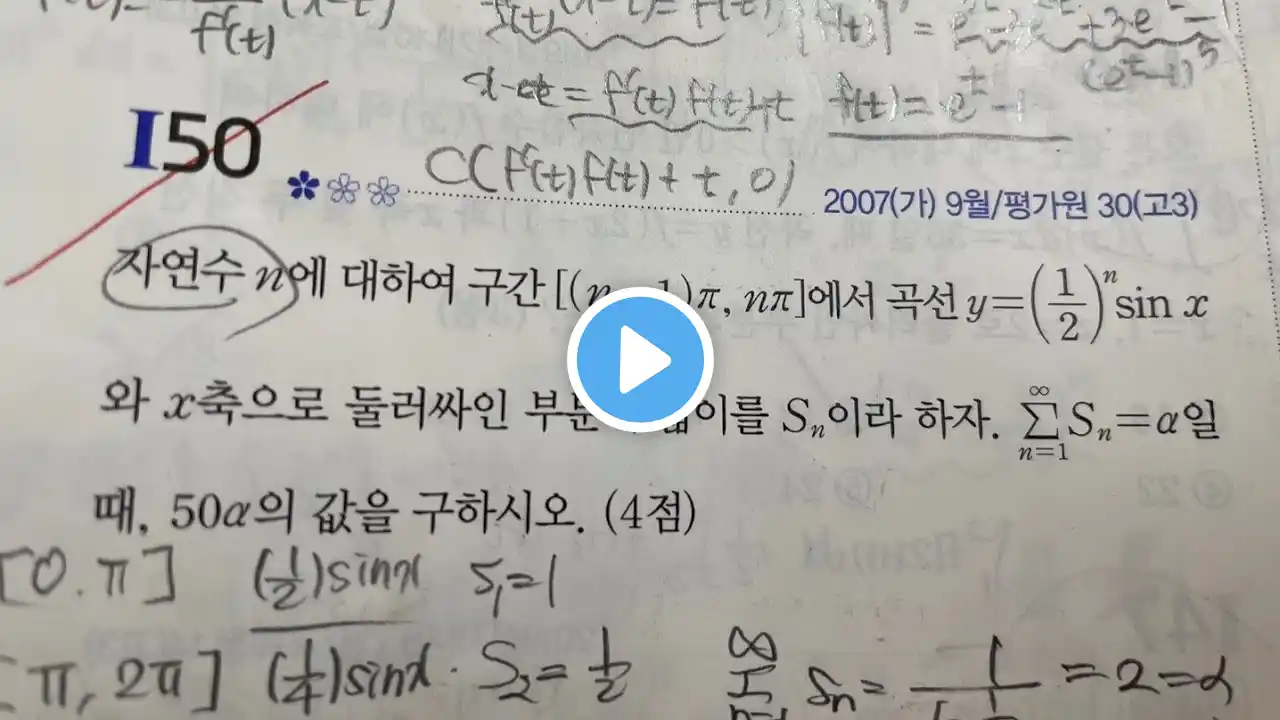 f'(t)
x-t = f'(t)f(t)+t f(t) = e^t - 1
I50
C(f'(t)f(t)+t, 0)
2007(가) 9월/평가원 30(고3)
자연수 n에 대하여 구간 [(n-1)π, nπ]에서 곡선 y=(1/2)^n sin x
와 x축으로 둘러싸인 이를 Sₙ이라 하자. ∑(n=1→∞) Sₙ=α일
때, 50α의 값을 구하시오. (4점)
[0. π] (1/2)sinx S₁=1
[π, 2π] (1/4)sinx. S₂=1/2
∞ Sn = 1 = 2 = α